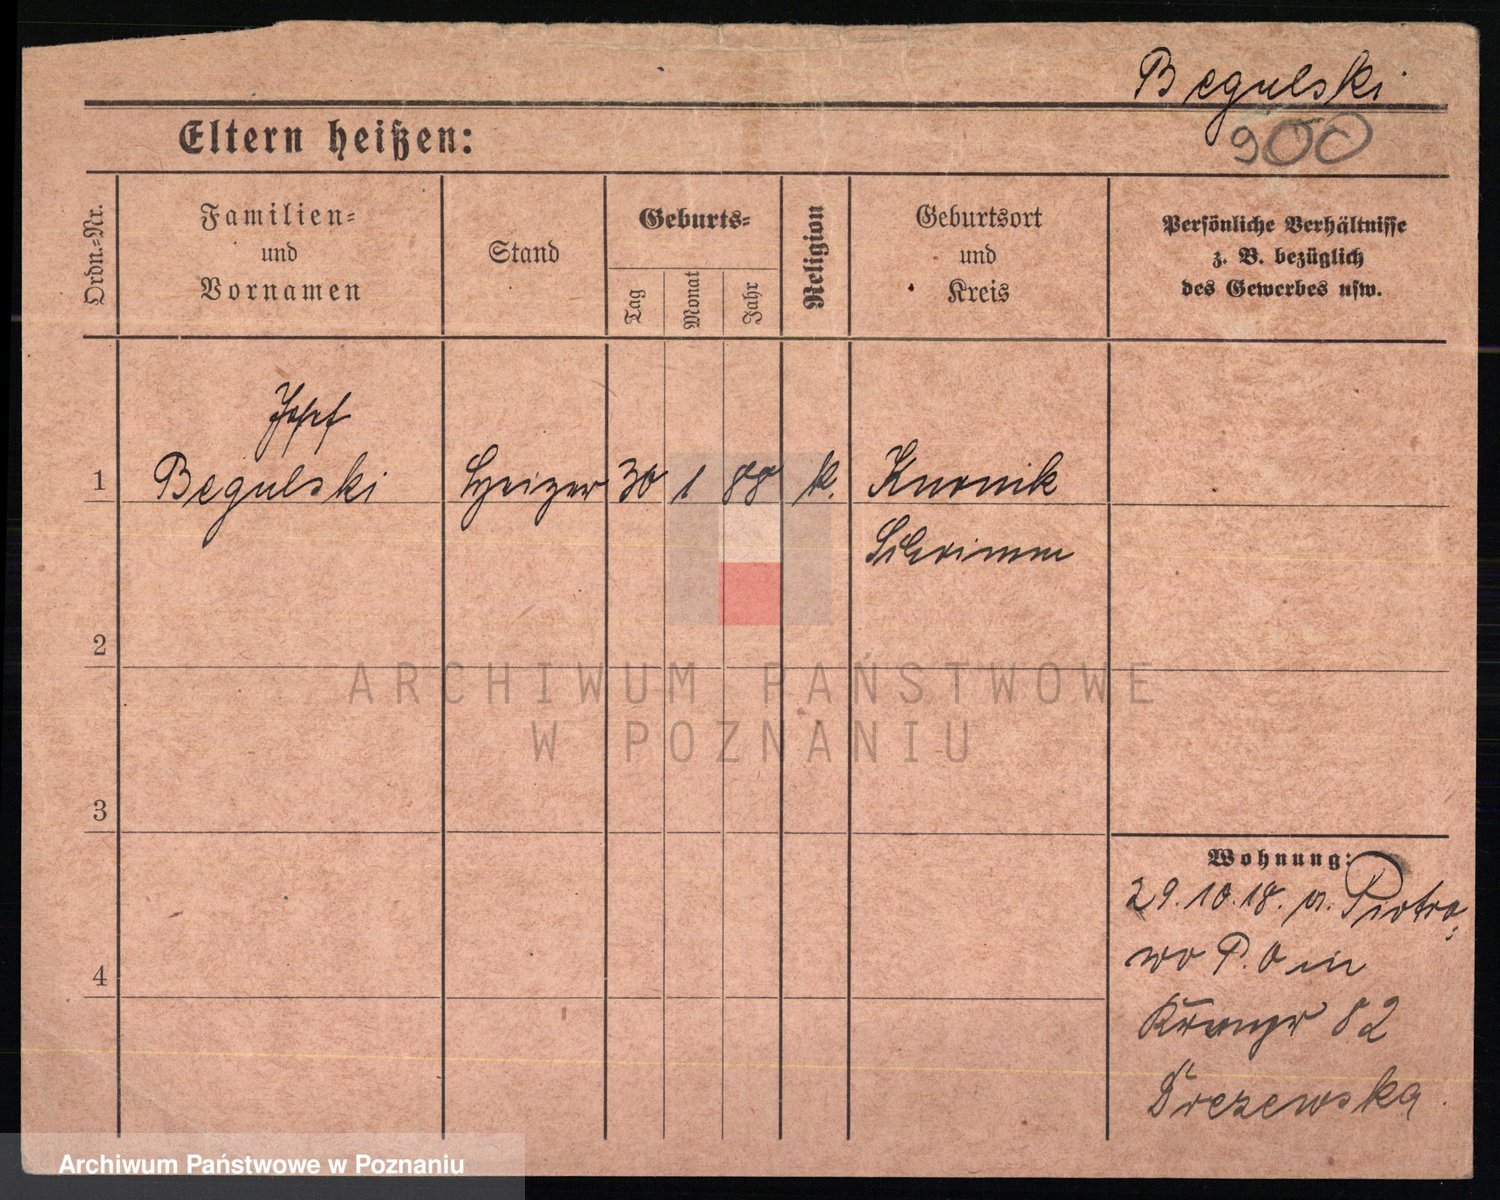 Begulski
900
Eltern heißen:
Ordn.-Nr.
Familien-
und
Vornamen
Stand
Geburts-
Tag
Monat
Jahr
Religion
Geburtsort
und
Kreis
Persönliche Verhältnisse
z. B. bezüglich
des Gewerbes usw.
Josef
1 Begulski Heizer 30 1 88 k. Kurnik
Schrimm
2
3
4
Wohnung:
29.10.18. n. Piotro-
wo P. O in
82
Drezewska.
ARCHIWUM PAŃSTWOWE
W POZNANIU
Archiwum Państwowe w Poznaniu